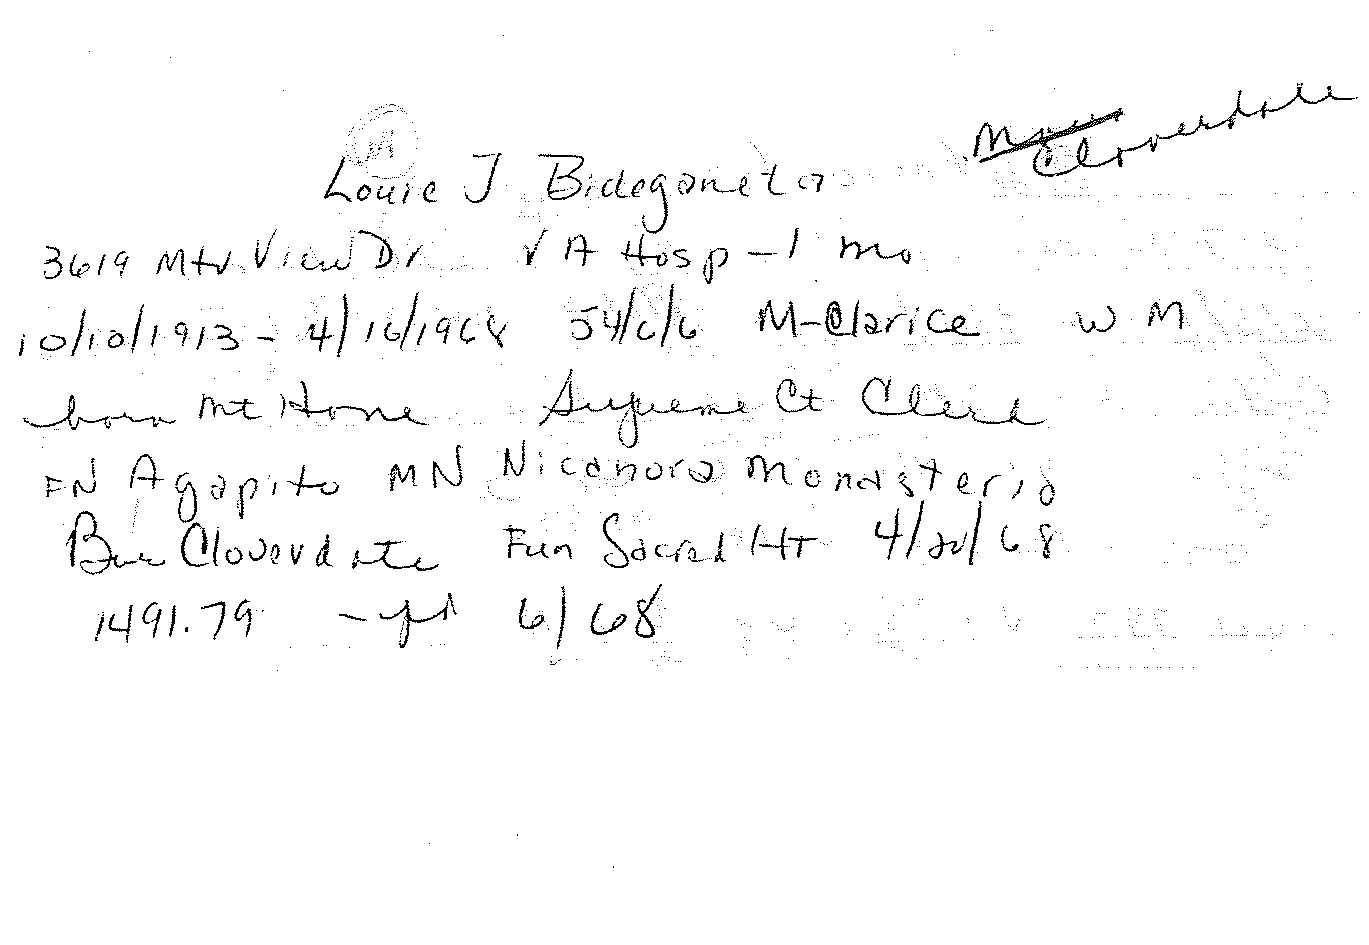 Cloverdale
Louie J Bideganeta
3619 Mtn View Dr VA Hosp - 1 mo
10/10/1913 - 4/16/1968 54/6/6 M-Clarice W M
born Mt Home Supreme Ct Clerk
FN Agapito MN Nicanora Monasterio
Bur Cloverdale Fun Sacred Ht 4/20/68
1491.79 - pd 6/68